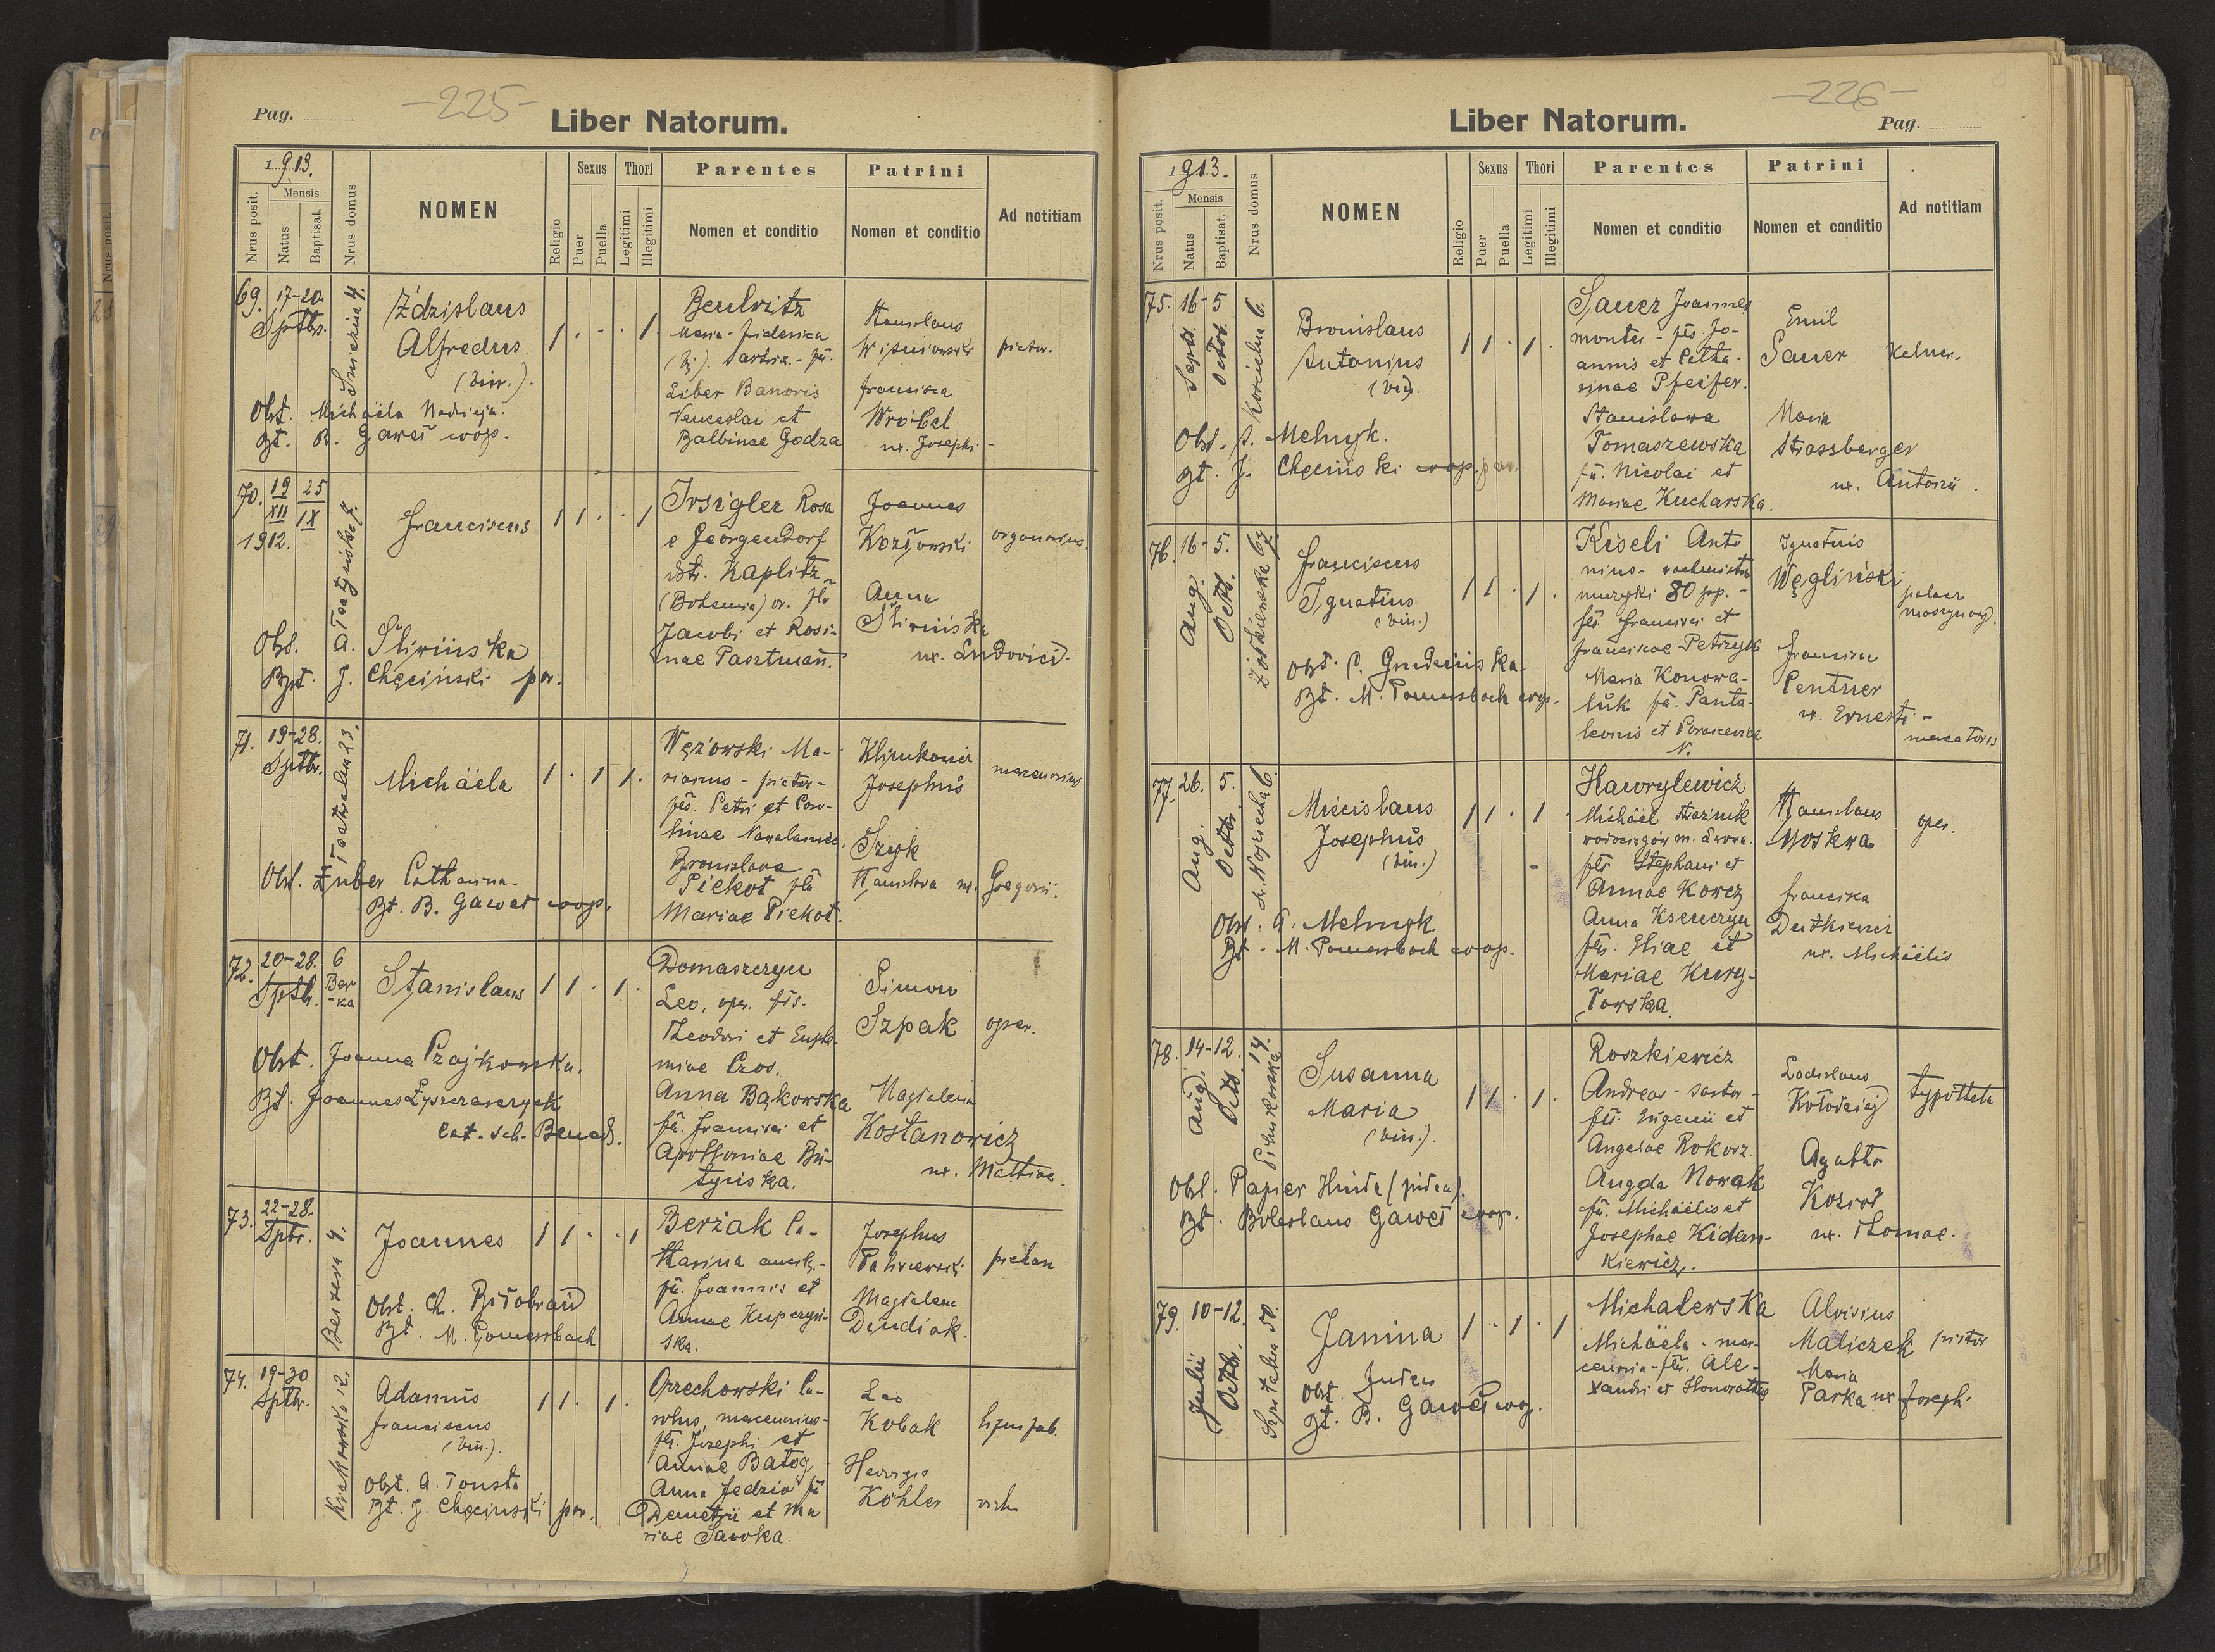 Pag.
-225-
Liber Natorum.
1913.
Nrus posit.
Mensis
Natus
Baptisat.
Nrus domus
NOMEN
Religio
Sexus
Puer
Puella
Thori
Legitimi
Illegitimi
Parentes
Nomen et conditio
Patrini
Nomen et conditio
Ad notitiam
69. 17-20.
Sptbr.
Zdzislaus
Alfredus
(bin.).
Obst. Michaëla
Bt. B. Gaweł coop.
Beulwitz
Maria - Friderica
Liber Banoris
Venceslai et
Balbinae Godza
Stanislaus
Wiśniowski
Francisca
Wróbel
ux. Josephi -
pictor.
70. 19 25
XII IX
1912.
Franciscus
Obst. A. Śliwińska
Bpt. J. Chęciński par.
Irsigler Rosa
e Georgendorf
distr. Kaplitz
(Bohemia)
Jacobi et Rosi-
nae Pasztman.
Joannes
Kozłowski
Anna
Śliwińska
ux. Ludovici.
organarius.
71. 19-28.
Sptbr.
Teatralna 23.
Michaëla
Obst. Zuber Catharina.
Bt. B. Gaweł coop.
Węzowski Ma-
rianus - pictor -
fil. Petri et Caro-
linae
Bronislava
Piekot fil.
Mariae Piekot.
Josephus
Szyk
Stanislava ux. Gregorii.
mercenarius
72. 20-28. 6
Sptb. Ber
-ka
Stanislaus
Obst. Joanna Czajkowska.
Bt. Joannes
cat. sch. Bened.
Domaszczyn
Leo, oper. fil.
Theodori et Euphe-
miae Czos.
Anna Bąkowska
fil. Francisci et
Apolloniae Bu-
tyńska.
Simon
Szpak
Magdalena
Kostanowicz
ux. Mathiae.
oper.
73. 22-28.
Sptbr.
Berzera 4.
Joannes
Obst. Ch. Białobrand
Bt. M. Pomersbach
Berżak Ca-
tharina ancill. -
fil. Joannis et
Annae Kupczyń-
ska.
Josephus
Magdalena
Dendiak.
74. 19-30
Sptbr.
Krakowska 12.
Adamus
Franciscus
(bin.).
Obst. A. Tousta
Bt. J. Chęciński par.
Orzechowski Ca-
rolus, mercenarius -
fil. Josephi et
Annae Batog
Anna Jedzio fil
Demetrii et Ma
riae Sawka.
Leo
Kobak
Hedvigis
Köhler
-226-
Liber Natorum.
Pag.
1913.
Nrus posit.
Mensis
Natus
Baptisat.
Nrus domus
NOMEN
Religio
Sexus
Puer
Puella
Thori
Legitimi
Illegitimi
Parentes
Nomen et conditio
Patrini
Nomen et conditio
Ad notitiam
75. 16-5
Sept. Octob.
Bronislaus
Antonius
(bin).
Obst. P. Melnyk.
Bt. J. Chęciński coop. par.
Sauer Joannes
monter - fil. Jo-
annis et Catha-
rinae Pfeifer.
Stanislawa
Tomaszewska
fil. Nicolai et
Mariae Kucharska.
Emil
Sauer
Maria
Strassberger
ux. Antonii.
Kelner.
76. 16-5.
Aug. Oct.
Żółkiewska 67.
Franciscus
Ignatius
(bin.)
Obst. P. Grudzińska.
Bt. M. Pomersbach coop.
Kiseli Anto
nius -
muzyki 80 pp. -
fil. Francisci et
Franciscae Petrzyk
Maria Konowa-
luk fil. Panta-
leonis et
N.
Ignatius
Węgliński
Francisca
Pentner
ux. Ernesti -
mercatoris
palacz
77. 26. 5.
Aug. Octbr.
Miecislaus
Josephus
(bin.)
Obst. A. Melnyk.
Bt. - M. Pomersbach coop.
Hawrylewicz
Michael strażnik
wodociągów m. Lwowa.
fil. Stephani et
Annae Kowcz
Anna Ksenczyn
fil. Eliae et
Mariae Kury-
łowska.
Stanislaus
Moskwa
Francisca
Dutkiewicz
ux. Michaëlis
oper.
78. 14-12.
Aug. Oct.
Susanna
Maria
(bin.).
Obst. Papier Hinde (judea).
Bt. Boleslaus Gaweł coop.
Roszkiewicz
Andreas - sartor -
fil. Eugenii et
Angelae Rokosz.
Angela Nowak
fil. Michaëlis et
Josephae Kidan-
kiewicz.
Ladislaus
Kołodziej
Agatha
Kozioł
ux. Thomae.
typotheta
79. 10-12.
Julii Octb.
Szpitalna 50.
Janina
Obst. Judea
Bt. B. Gaweł coop.
Michalewska
Michaëla - mer-
cenaria - fil. Ale-
xandri et Honorathae
Aloisius
Maliczek
Maria
Parka ux Joseph.
pistor